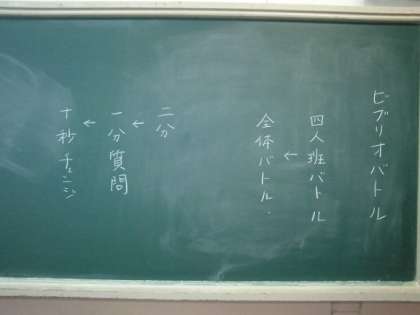 ビブリオバトル
四人班バトル
↓
全体バトル.
二分
↓
一分質問
↓
十秒チェンジ